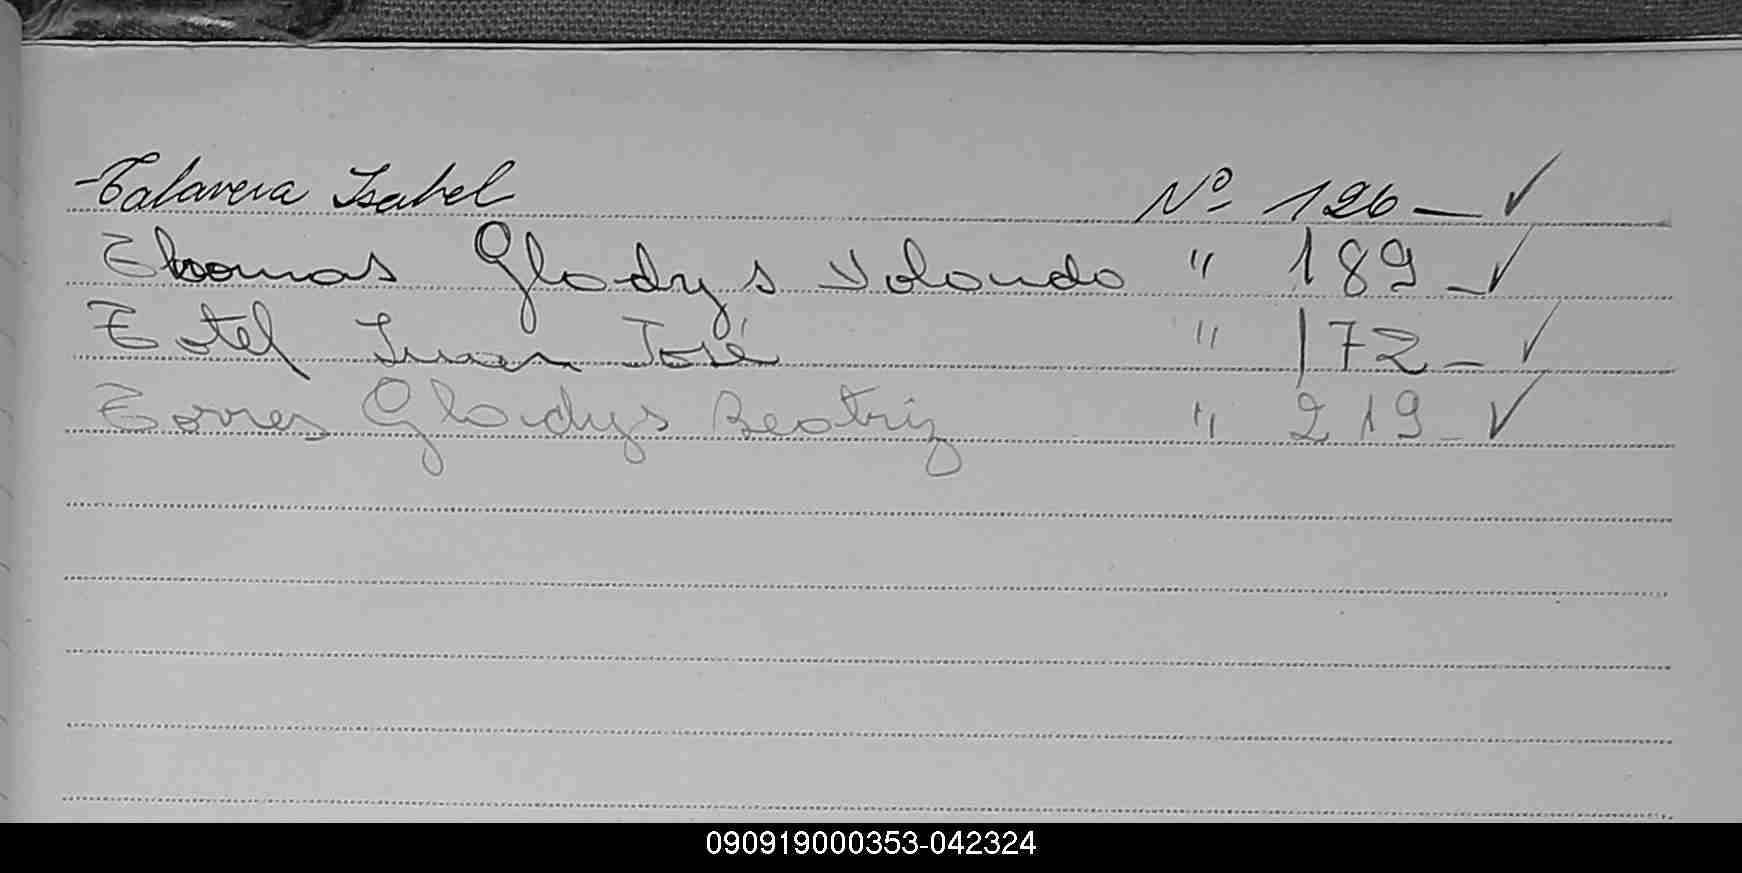 Talavera Isabel Nº 126 — ✓
Thomas Gladys Yolanda " 189 — ✓
Totel Juan José " 172 — ✓
Torres Gladys Beatriz " 219 — ✓
090919000353-042324